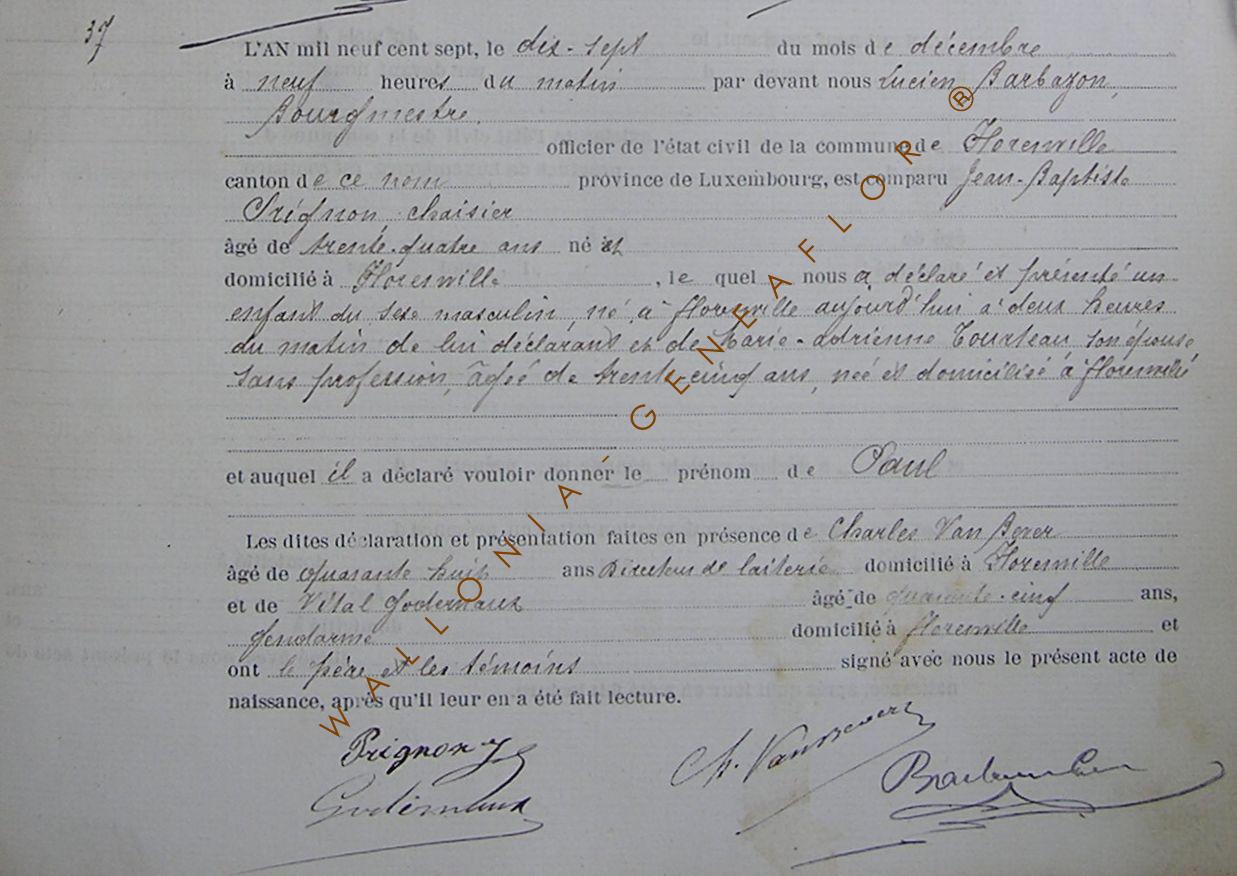 37
L'AN mil neuf cent sept, le dix-sept du mois de décembre
à neuf heures du matin par devant nous Lucien Barbazon,
Bourgmestre.
officier de l'état civil de la commune de Florenville
canton de ce nom province de Luxembourg, est comparu Jean-Baptiste
Prignon chaisier
âgé de trente-quatre ans né
domicilié à Florenville, le quel nous a déclaré et présenté un
enfant du sexe masculin, né à Florenville aujourd'hui à deux heures
du matin de lui déclarant et de Marie-Adrienne Tourteau son épouse
sans profession, âgée de trente-cinq ans, née et domiciliée à Florenville
et auquel il a déclaré vouloir donner le prénom de Paul
Les dites déclaration et présentation faites en présence de Charles Van
âgé de quarante huit ans Directeur de laiterie domicilié à Florenville
et de Vital Godernaux âgé de quarante-cinq ans,
gendarme domicilié à Florenville et
ont le père et les témoins signé avec nous le présent acte de
naissance, après qu'il leur en a été fait lecture.
Prignon J
Ch.
Godernaux
WALLONIA - GENEAFLOR ®